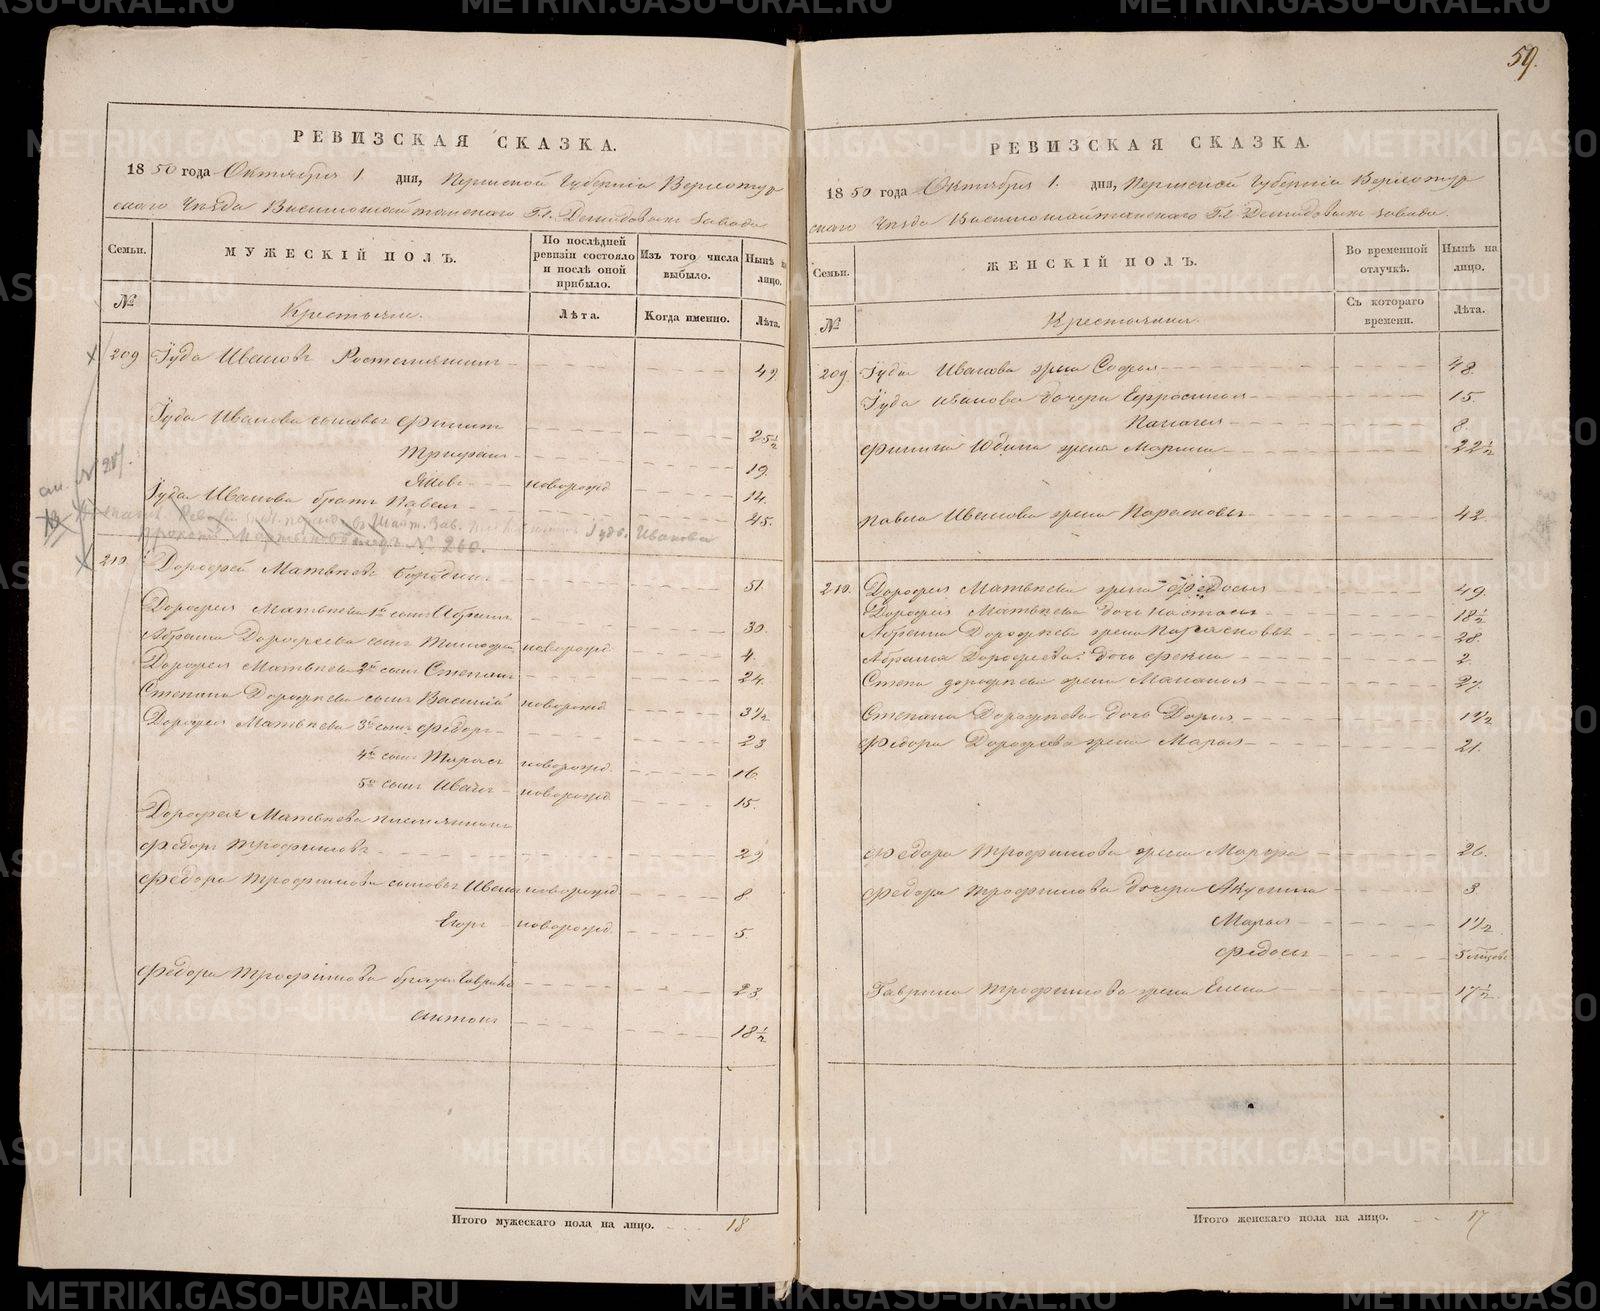 59.
РЕВИЗСКАЯ СКАЗКА.
1850 года Октября 1 дня, Пермской Губерніи Верхотур
скаго Уѣзда Висимошайтанскаго Гг. Демидовыхъ Завода
Семьи. МУЖЕСКІЙ ПОЛЪ. По послѣдней ревизіи состояло и послѣ оной прибыло. Изъ того числа выбыло. Нынѣ на лицо.
№ Крестьяне. Лѣта. Когда именно. Лѣта.
209 Іуда Ивановъ 49.
Іуда Иванова сыновья Филипъ 25½
Трифонъ 19.
Яковъ новорожд 14.
Іуда Иванова братъ Павелъ 45.
Іуда Иванова
№ 260.
210. Дорофей Матвѣевъ Бородинъ 51.
Дорофея Матвѣева 1й сынъ Абрамъ 30.
Абрама Дорофеева сынъ Тимофей новорожд 4.
Дорофея Матвѣева 2й сынъ Степанъ 24.
Степана Дорофѣева сынъ Василій новорожд 3½
Дорофея Матвѣева 3й сынъ Федоръ 23
4й сынъ Тарасъ новорожд 16.
5й сынъ Иванъ новорожд 15.
Дорофея Матвѣева племянникъ
Федоръ Трофимовъ 29
Федора Трофимова сыновья Иванъ новорожд 8
Егоръ новорожд 5.
Федора Трофимова братья Гаврило 23.
Антонъ 18½
Итого мужескаго пола на лицо. 18
РЕВИЗСКАЯ СКАЗКА.
1850 года Октября 1. дня, Пермской Губерніи Верхотур
скаго Уѣзда Висимошайтанскаго Гг Демидовыхъ Завода.
Семьи. ЖЕНСКІЙ ПОЛЪ. Во временной отлучкѣ. Нынѣ на лицо.
№ Крестьянки. Съ котораго времени. Лѣта.
209. Іуды Иванова жена Софья 48.
Іуда Иванова дочери Ефросинья 15.
8.
Филипа Юдина жена Марина 22½
Павла Иванова жена Парасковья 42.
210. Дорофея Матвѣева жена Федосья 49.
Дорофея Матвѣева дочь Настасья 18½
Абрама Дорофѣева жена Парасковья 28.
Абрама Дорофеева дочь Фекла 2.
Степа дорофѣева жена Маланья 27.
Степана Дорофѣева дочь Дарья 1½
Федора Дорофеева жена Марья 21.
Федора Трофимова жена Марфа 26.
Федора Трофимова дочери Акулина 3.
Марья 1½
Федосья 5 мѣсяц
Гаврила Трофимова жена Елена 17½
Итого женскаго пола на лицо. 17
METRIKI.GASO-URAL.RU